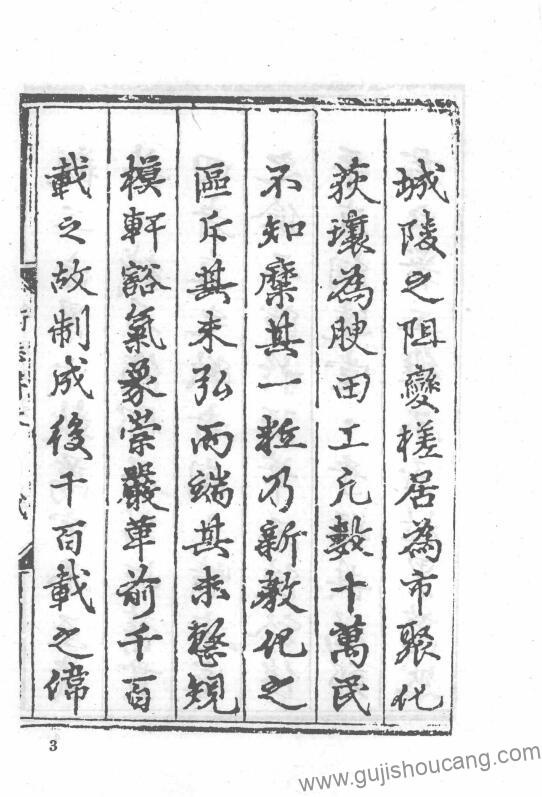 城陵之阻變槎居為市聚化
荻壤為腴田工凡數十萬民
不知糜其一粒乃新教化之
區斥其未弘而端其未整規
模軒豁氣象崇嚴革前千百
載之故制成後千百載之偉
3
www.gujishoucang.com